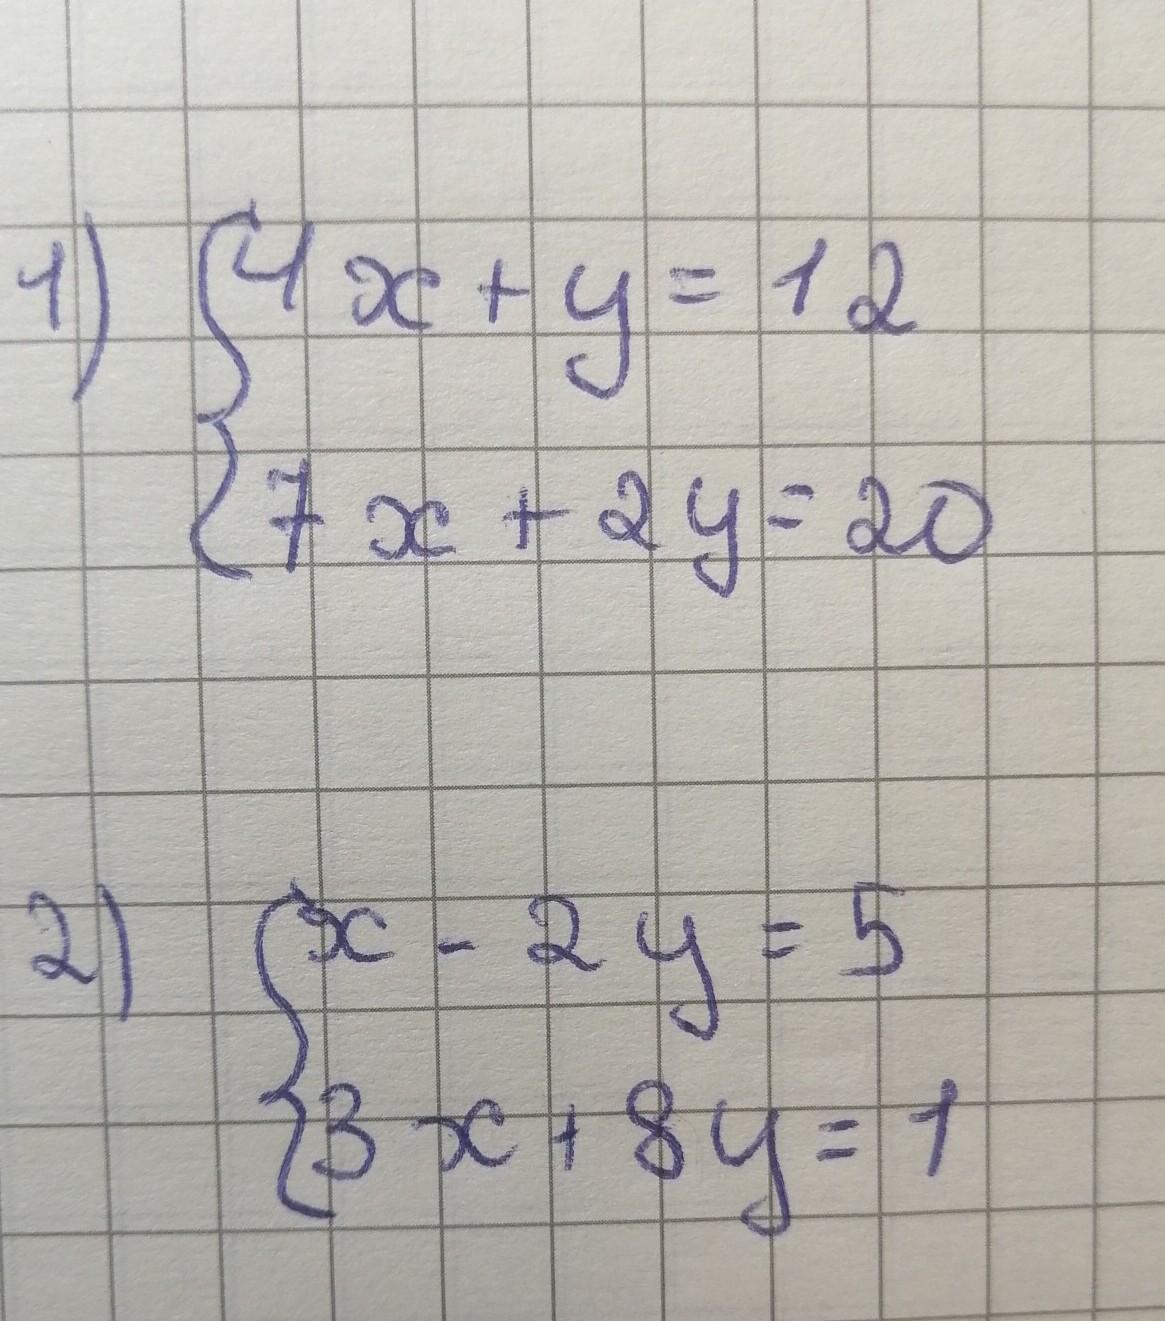 1) {4x + y = 12
{7x + 2y = 20
2) {x - 2y = 5
{3x + 8y = 1